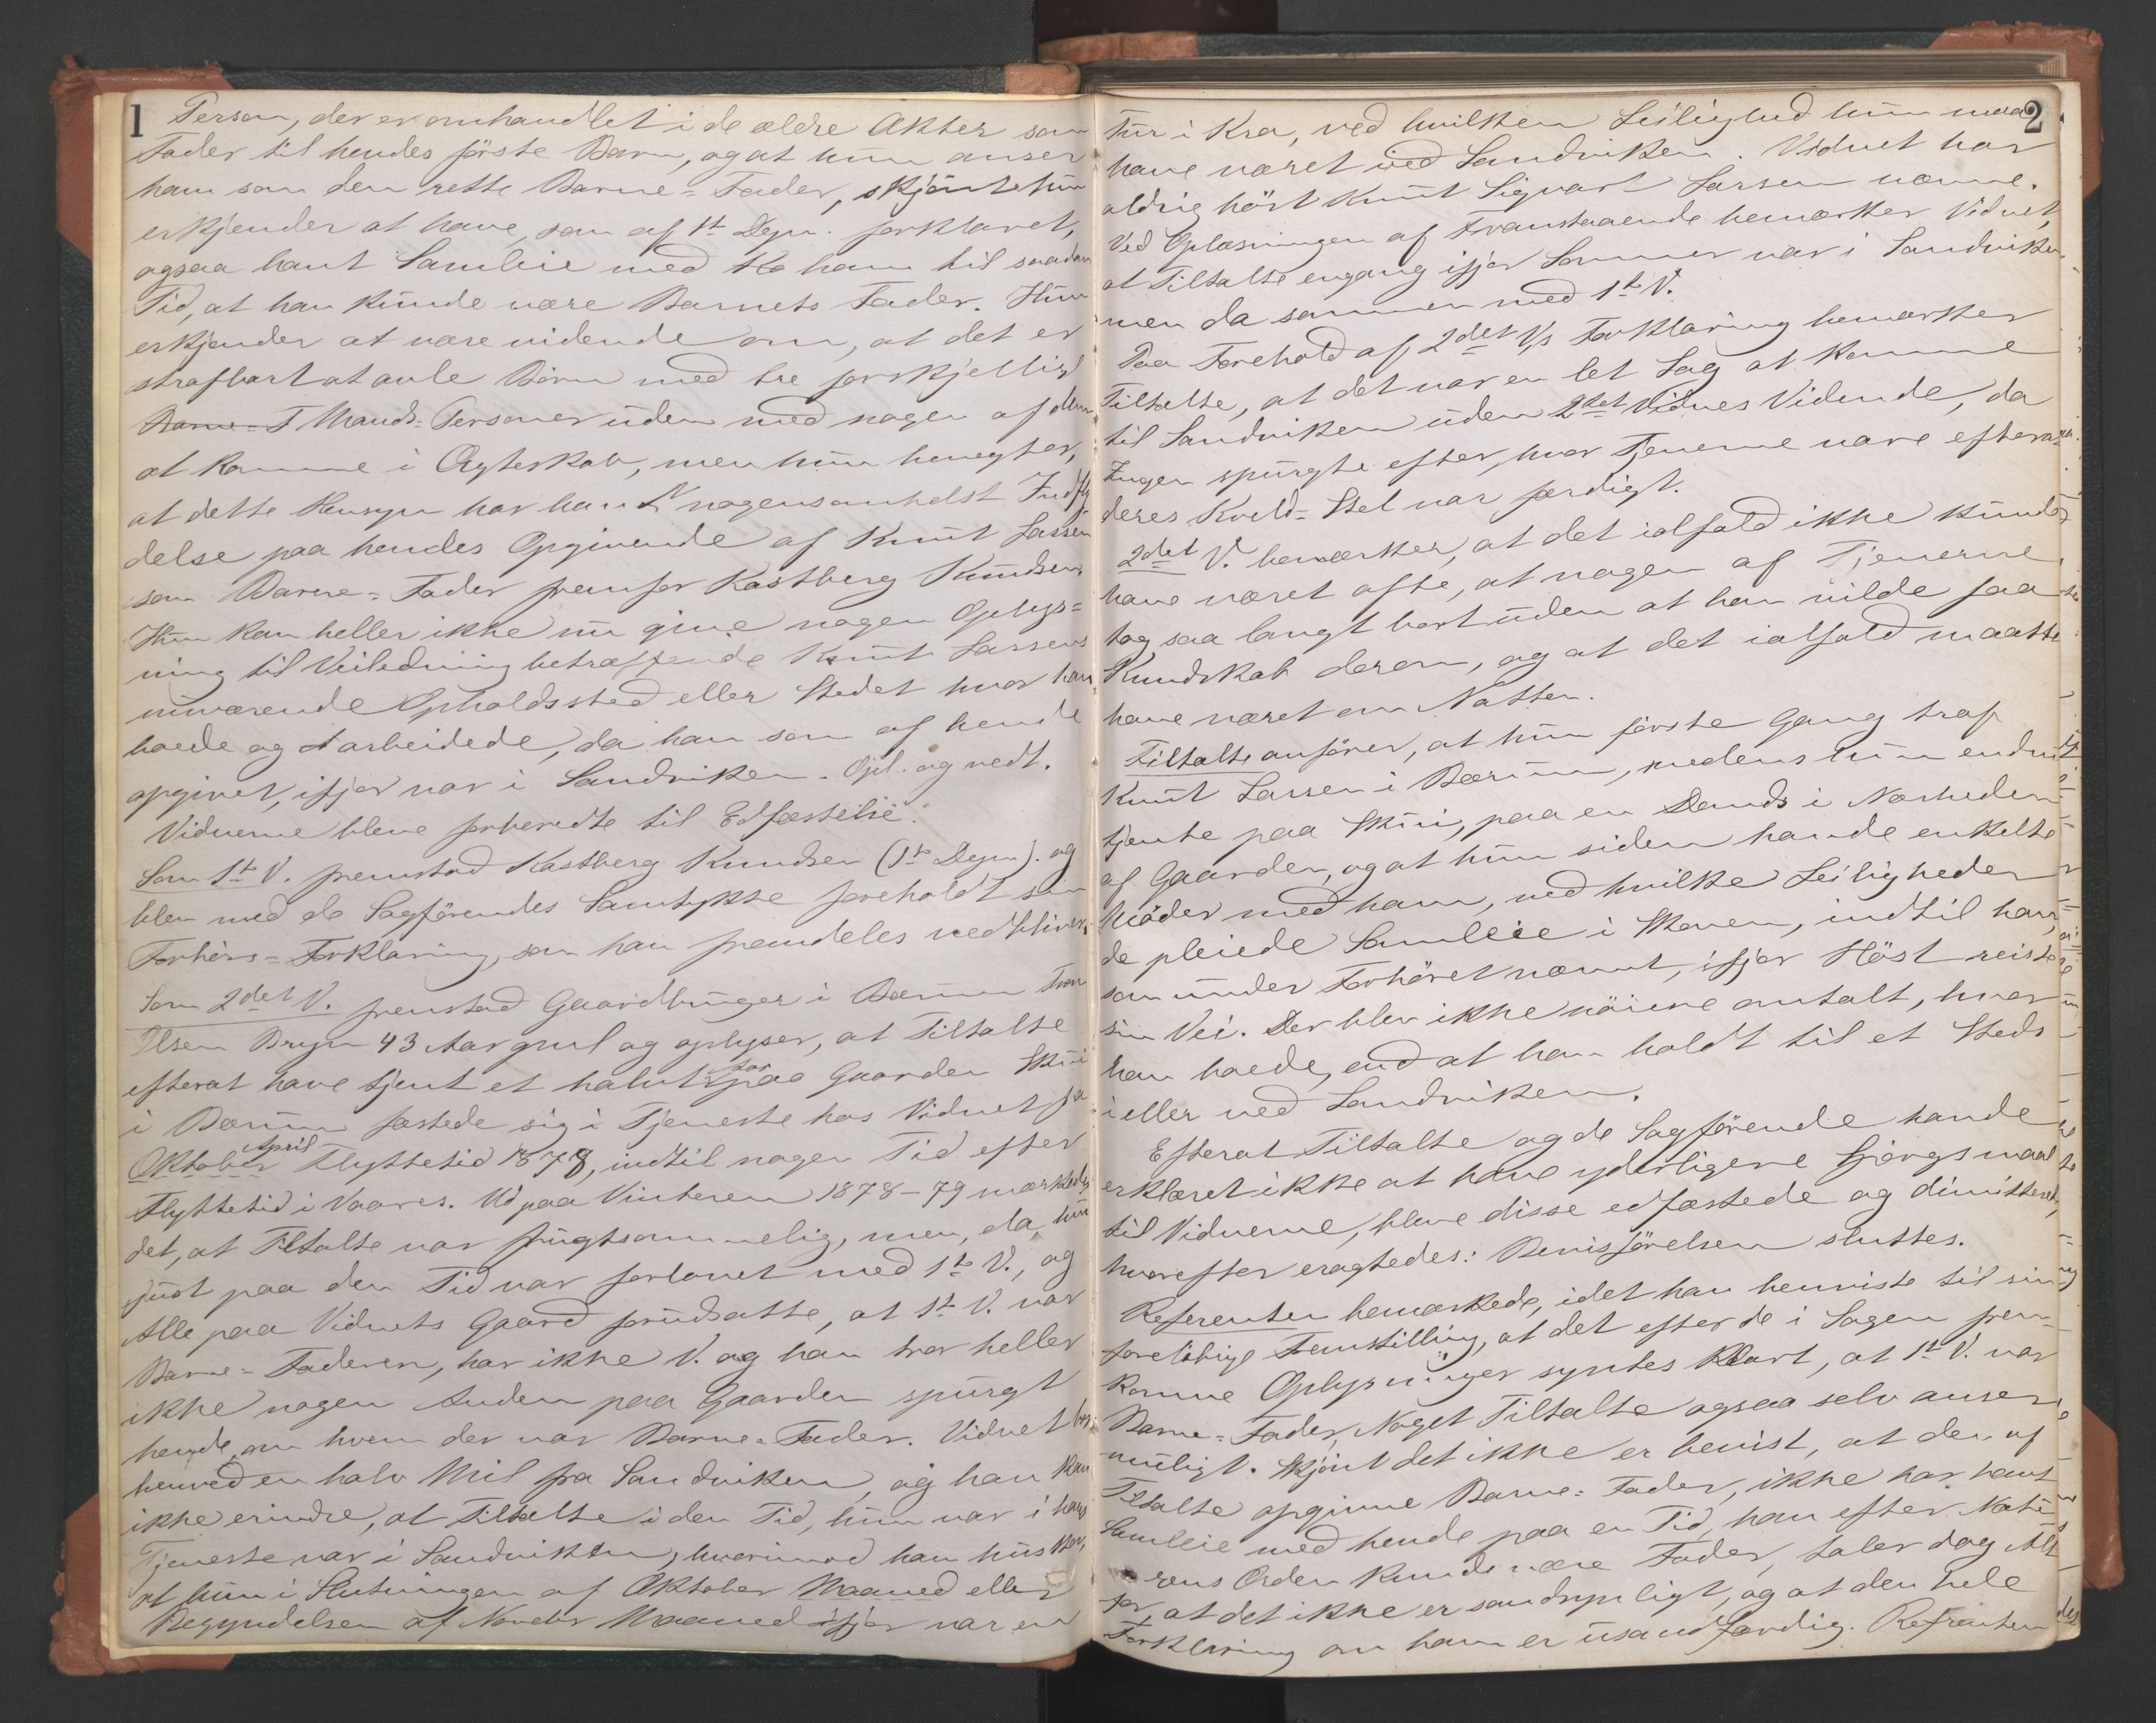 1
Person, der er omhandlet i de ældre Akter som
Fader til hendes förste Barn, og at hun anser
ham som den rette Barne-Fader, skjönt hun
erkjender at have, som af 1ste Depn. forklaret,
ogsaa havt Samleie med Ko ham til saadan
Tid, at han kunde være Barnets Fader. Hun
erkjender at være vidende om, at det er
strafbart at avle Börn med tre forskjellige
Barne-F Mands-Personer uden med nogen af dem
at komme i Ægteskab, men hun benegter,
at dette Hensyn har havt nogensomhelst Indfly
delse paa hendes Opgivende af Knut Larsen
som Barne-Fader fremfor Kastberg Knudsen.
Hun kan heller ikke nu give nogen Oplys-
ning til Veiledning betræffende Knut Larsens
nuværende Opholdssted eller Stedet hvor han
boede og arbeidede, da han som af hende
opgivet, ifjor var i Sandviken. Opl. og vedt.
Vidnerne bleve forberedte til Edfæstelse.
Som 1ste V. fremstod Kastberg Knudsen (1ste Depn). og
blev med de Sagförendes Samtykke foreholdt sin
Forhörs-Forklaring, som han fremdeles vedbliver.
Som 2det V. fremstod Gaardbruger i Bærum
Olsen Bryn 43 Aar gml og oplyser, at Tiltalte
efterat have tjent et halvt Aar paa Gaarden Skui
i Bærum fæstede sig i Tjeneste hos Vidnet fra
Oktober April Flyttetid 1878, indtil nogen Tid efter
Flyttetid i Vaares. Ud paa Vinteren 1878-79 mærkedes
det, at Tiltalte var frugtsommelig, men, da hun
just paa den Tid var forlovet med 1ste V., og
Alle paa Vidnets Gaard forudsatte, at 1ste V. var
Barne-Faderen, har ikke V. og han tror heller
ikke nogen Anden paa Gaarden spurgt
hende, om hvem der var Barne-Fader. Vidnet bor
henved en halv Mil fra Sandviken, og han kan
ikke erindre, at Tiltalte i den Tid, hun var i hans
Tjeneste var i Sandviken, hvorimod han husker,
at hun i Slutningen af Oktober Maaned eller
Begyndelsen af Novebr Maaned ifjor var en
2
Tur i Kra, ved hvilken Leilighed hun maa
have været ved Sandviken. Vidnet har
aldrig hört Knut Sigvart Larsen nævne.
Ved Oplæsningen af Foranstaaende bemærker Vidnet,
at Tiltalte engang ifjor Sommer var i Sandviken
men da sammen med 1ste V.
Paa Forehold af 2det Vs Forklaring bemærker
Tiltalte, at det var en let Sag at komme
til Sandviken uden 2det Vidnes Vidende, da
Ingen spurgte efter, hvor Tjenerne vare efterat
deres Kveld-Stel var færdigt.
2det V. bemærker, at det ialfald ikke kunde
have været ofte, at nogen af Tjenerne
tog saa langt bort uden at han vilde faa
Kundskab derom, og at det ialfald maatte
have været om Natten.
Tiltalte anförer, at hun förste Gang traf
Knut Larsen i Bærum, medens hun endnu
tjente paa Skui, paa en Dands i Nærheden
af Gaarden, og at hun siden havde enkelte
Möder med ham, ved hvilke Leiligheder
de pleiede Samleie i Skoven, indtil han,
som under Forhöret nævnt, ifjor Höst reiste
sin Vei. Der blev ikke nöiere omtalt, hvor
han boede, end at han holdt til et Steds
i eller ved Sandviken.
Efterat Tiltalte og de Sagförende havde
erklæret ikke at have yderligere Spörgsmaal
til Vidnerne, bleve disse edfæstede og dimitterede,
hvorefter eragtedes: Bevisförelsen sluttes.
Referenten bemærkede, idet han henviste til sin
forelöbige Fremstilling, at det efter de i Sagen frem-
komne Oplysninger syntes klart, at 1ste V. var
Barne-Fader, Noget Tiltalte ogsaa selv anser
muligt. Skjönt det ikke er bevist, at den af
Tiltalte opgivne Barne-Fader, ikke har havt
Samleie med hende paa en Tid, han efter Natu
rens Orden kunde være Fader, taler dog Alt
for, at det ikke er sandsynligt, og at den hele
Forklaring om ham er usandfærdig. Referenten